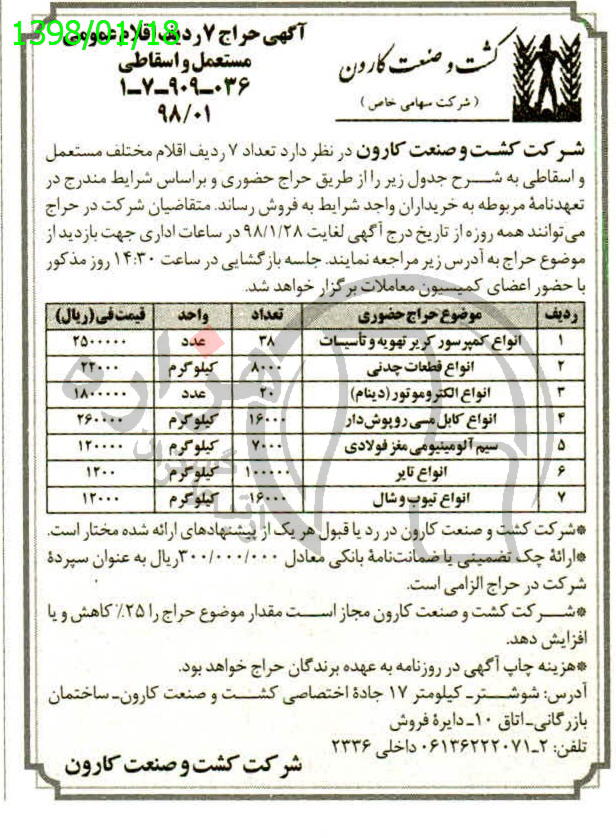 1398/01/18
آگهی حراج ۷ ردیف اقلام عمومی
مستعمل و اسقاطی
۱-۷-۹۰۹-۰۳۶
۹۸/۰۱
کشت و صنعت کارون
(شرکت سهامی خاص)
شرکت کشت و صنعت کارون در نظر دارد تعداد ۷ ردیف اقلام مختلف مستعمل
و اسقاطی به شرح جدول زیر را از طریق حراج حضوری و براساس شرایط مندرج در
تعهدنامهٔ مربوطه به خریداران واجد شرایط به فروش رساند. متقاضیان شرکت در حراج
می‌توانند همه روزه از تاریخ درج آگهی لغایت ۹۸/۱/۲۸ در ساعات اداری جهت بازدید از
موضوع حراج به آدرس زیر مراجعه نمایند. جلسه بازگشایی در ساعت ۱۴:۳۰ روز مذکور
با حضور اعضای کمیسیون معاملات برگزار خواهد شد.
ردیف موضوع حراج حضوری تعداد واحد قیمت فی (ریال)
۱ انواع کمپرسور کریر تهویه و تأسیسات ۳۸ عدد ۲۵۰۰۰۰۰
۲ انواع قطعات چدنی ۸۰۰۰ کیلوگرم ۲۲۰۰۰
۳ انواع الکتروموتور (دینام) ۲۰ عدد ۱۸۰۰۰۰۰
۴ انواع کابل مسی روپوش‌دار ۱۶۰۰۰ کیلوگرم ۲۶۰۰۰۰
۵ سیم آلومینیومی مغز فولادی ۷۰۰۰ کیلوگرم ۱۲۰۰۰۰
۶ انواع تایر ۱۰۰۰۰۰ کیلوگرم ۱۲۰۰
۷ انواع تیوپ و شال ۱۶۰۰۰ کیلوگرم ۱۲۰۰۰
*شرکت کشت و صنعت کارون در رد یا قبول هر یک از پیشنهادهای ارائه شده مختار است.
*ارائهٔ چک تضمینی یا ضمانت‌نامهٔ بانکی معادل ۳۰۰/۰۰۰/۰۰۰ریال به عنوان سپردهٔ
شرکت در حراج الزامی است.
*شرکت کشت و صنعت کارون مجاز است مقدار موضوع حراج را ۲۵٪ کاهش و یا
افزایش دهد.
*هزینه چاپ آگهی در روزنامه به عهده برندگان حراج خواهد بود.
آدرس: شوشتر- کیلومتر ۱۷ جادهٔ اختصاصی کشت و صنعت کارون- ساختمان
بازرگانی- اتاق ۱۰- دایرهٔ فروش
تلفن: ۲-۰۶۱۳۶۲۲۲۰۷۱ داخلی ۲۳۳۶
شرکت کشت و صنعت کارون